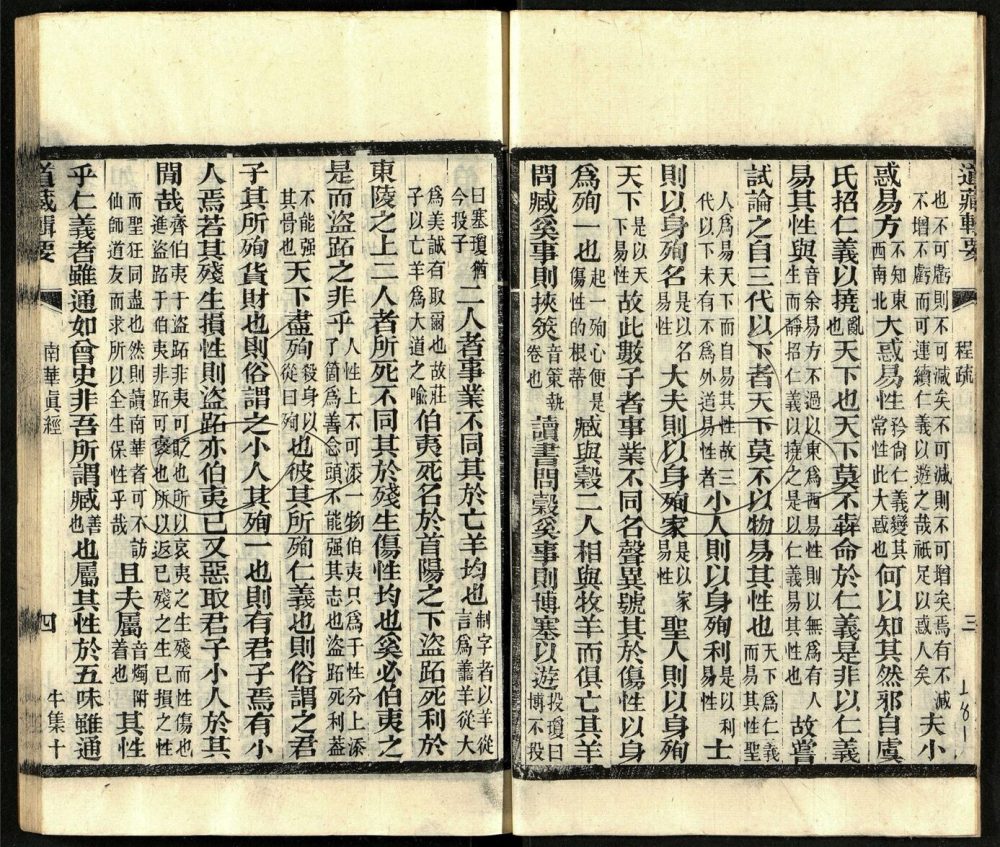 道藏輯要 程疏 三
也不可虧則不可減矣不可減則不可增矣焉有不減不增不虧而可連續仁義以遊之哉祇足以或人矣夫小
惑易方不知東西南北大惑易性矜尙仁義變其常性此大惑也何以知其然邪自虞
氏招仁義以撓亂也天下也天下莫不犇命於仁義是非以仁義
易其性與音余易方不過以東爲西易性則以無爲有人生而靜招仁義以撓之是以仁義易其性也故嘗
試論之自三代以下者天下莫不以物易其性也天下爲仁義而易其性聖
人爲易天下而自易其性故三代以下未有不爲外道易性者小人則以身殉利是以利易性士
則以身殉名是以名易性大夫則以身殉家是以家易性聖人則以身殉
天下是以天下易性故此數子者事業不同名聲異號其於傷性以身
爲殉一也起一殉心便是傷性的根蒂臧與穀二人相與牧羊而俱亡其羊
問臧奚事則挾筴音策執卷也讀書問穀奚事則博塞以遊投瓊曰博不投
曰塞瓊猶今投子二人者事業不同其於亡羊均也制字者以羊從言爲善羊從大
爲美誠有取爾也故莊子以亡羊爲大道之喻伯夷死名於首陽之下盜跖死利於
東陵之上二人者所死不同其於殘生傷性均也奚必伯夷之
是而盜跖之非乎人性上不可漆一物伯夷只爲于性分上添了箇爲善念頭不能强其志也盜跖死利葢
不能强其骨也天下盡殉殺身以從曰殉也彼其所殉仁義也則俗謂之君
子其所殉貨財也則俗謂之小人其殉一也則有君子焉有小
人焉若其殘生損性則盜跖亦伯夷已又惡取君子小人於其
間哉齊伯夷于盜跖非夷可貶也所以哀夷之生殘而性傷也進盜跖于伯夷非跖可褒也所以返已殘之生已損之性
而聖狂同盡也然則讀南華者可不訪仙師道友而求所以全生保性乎哉且夫屬音燭附着也其性
乎仁義者雖通如曾史非吾所謂臧善也也屬其性於五味雖通
道藏輯要 南華眞經 四 牛集十